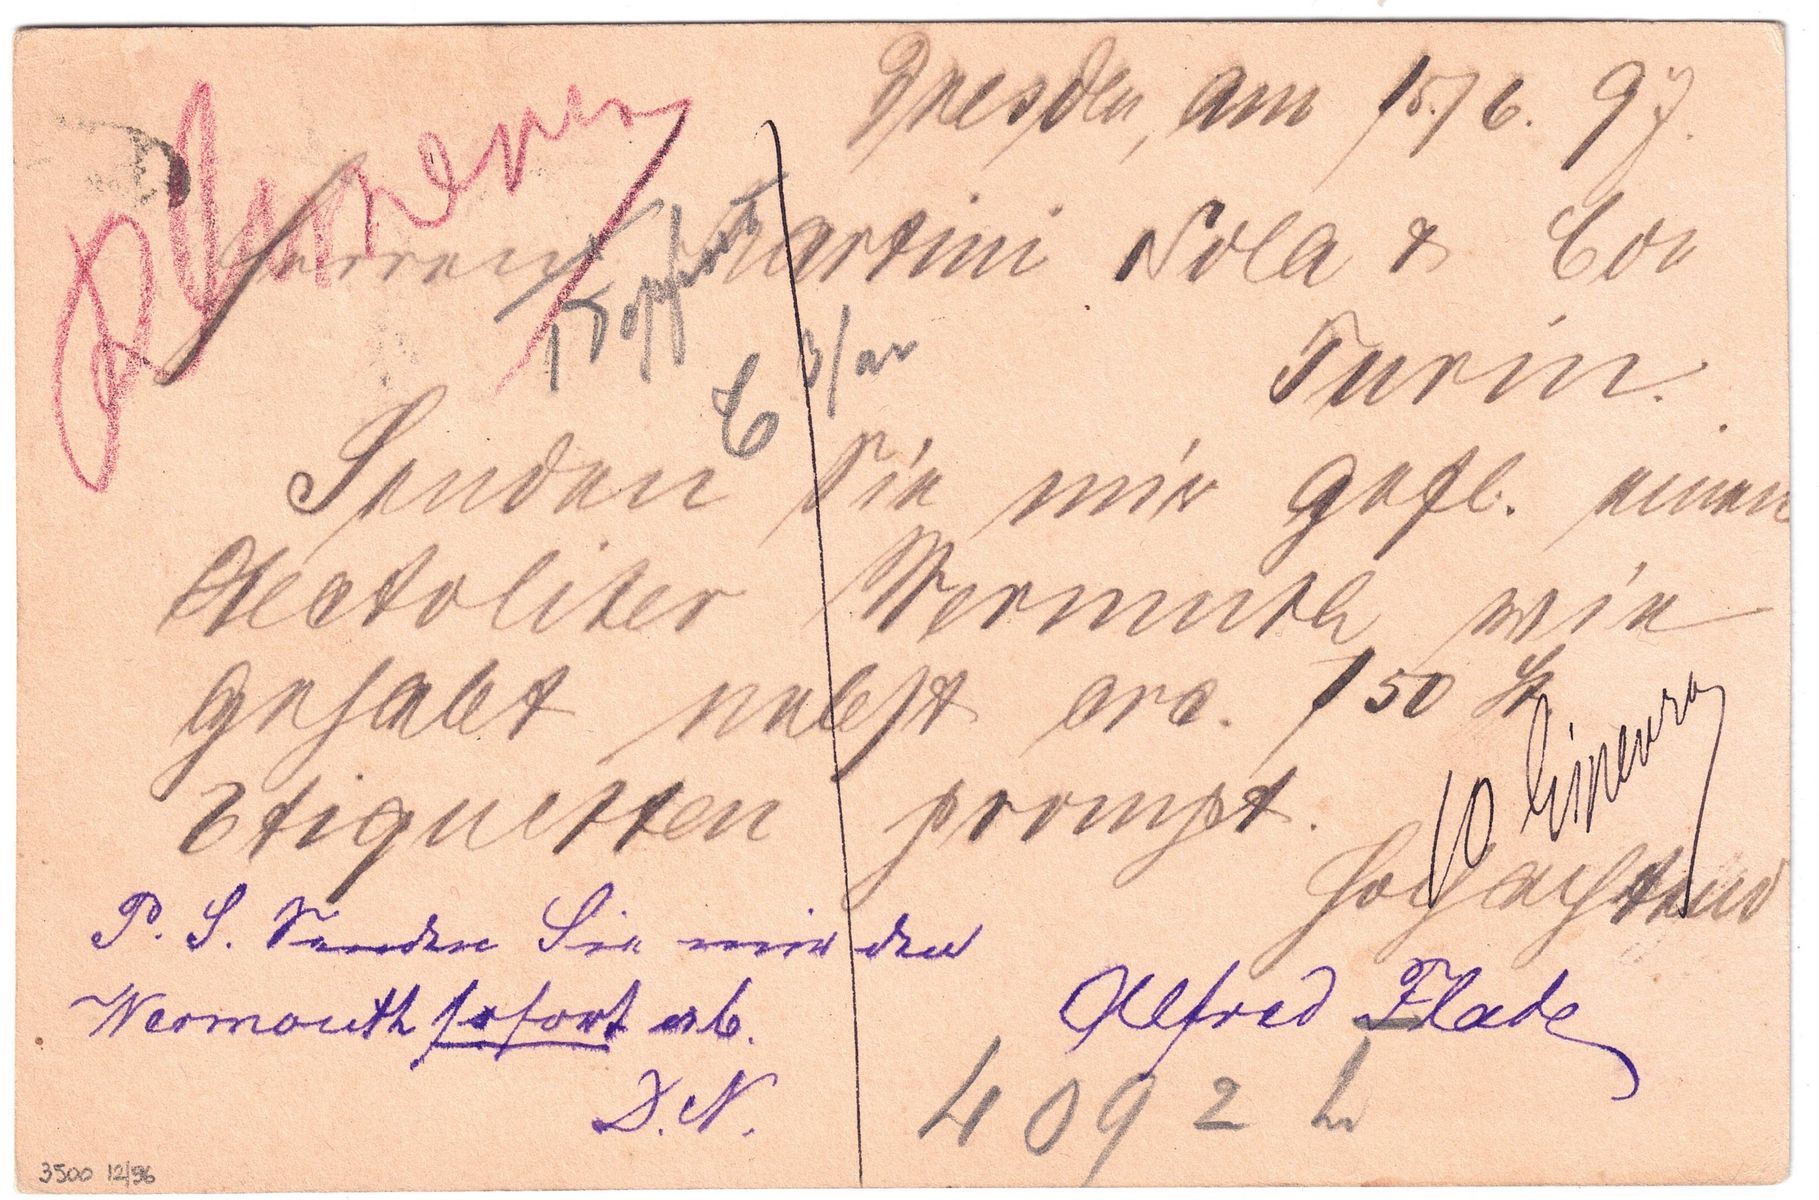 Dresden, am 15./6. 97.
Herren Martini Sola & Co
Turin.
Senden Sie mir gefl. einen
Hectoliter Wermuth wie
gehabt nebst cra. 150
Etiquetten prompt.
Hochachtend
Alfred Flade
P. S. Senden Sie mir den
Wermouth sofort ab.
D. N.
4092
3500 12/96